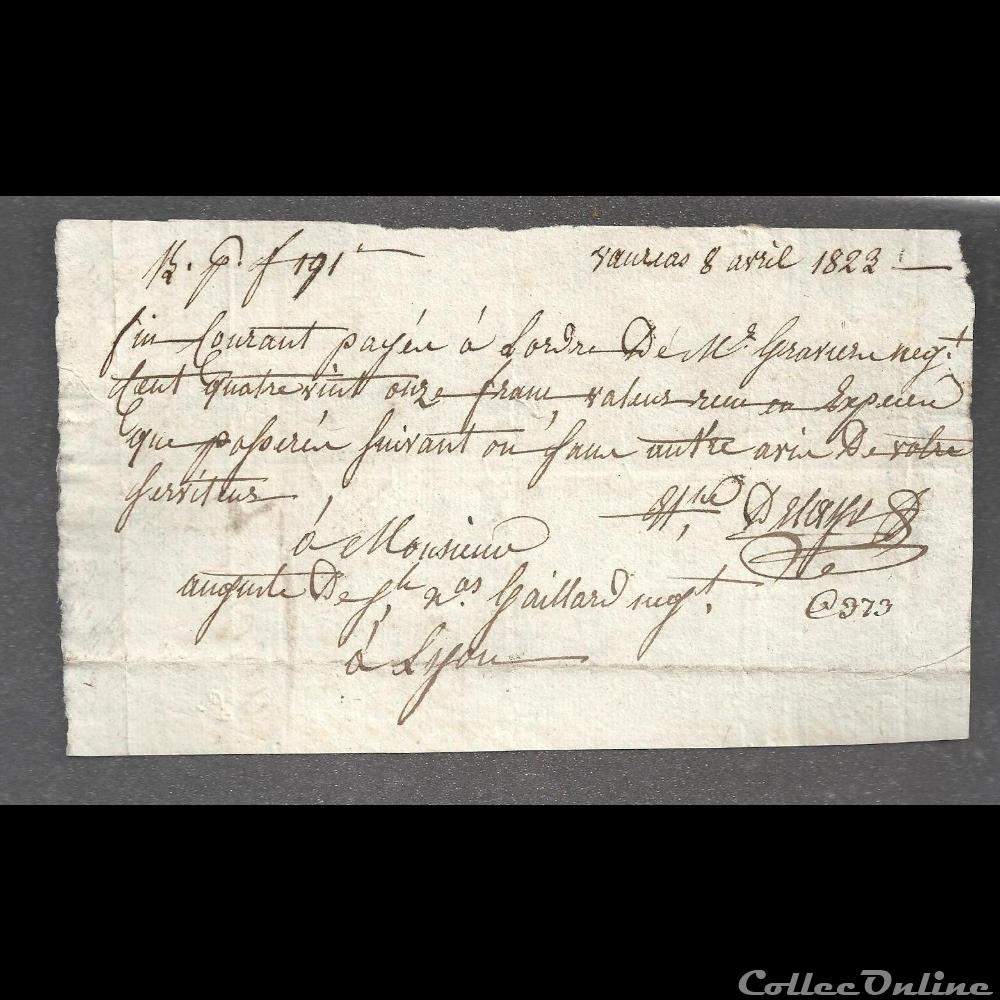 B. p. f 191
vaureas 8 avril 1823
fin Courant payéz à Lordre De Mr. Graviere neg.t
Cent quatre vint onze franc valeur recu en Especes
que passeréz suivant ou sans autre avis De votre
serviteur
Delaye
à Monsieur
auguste De Gaillard neg.t
@373
à Lyon
ColleeOnline